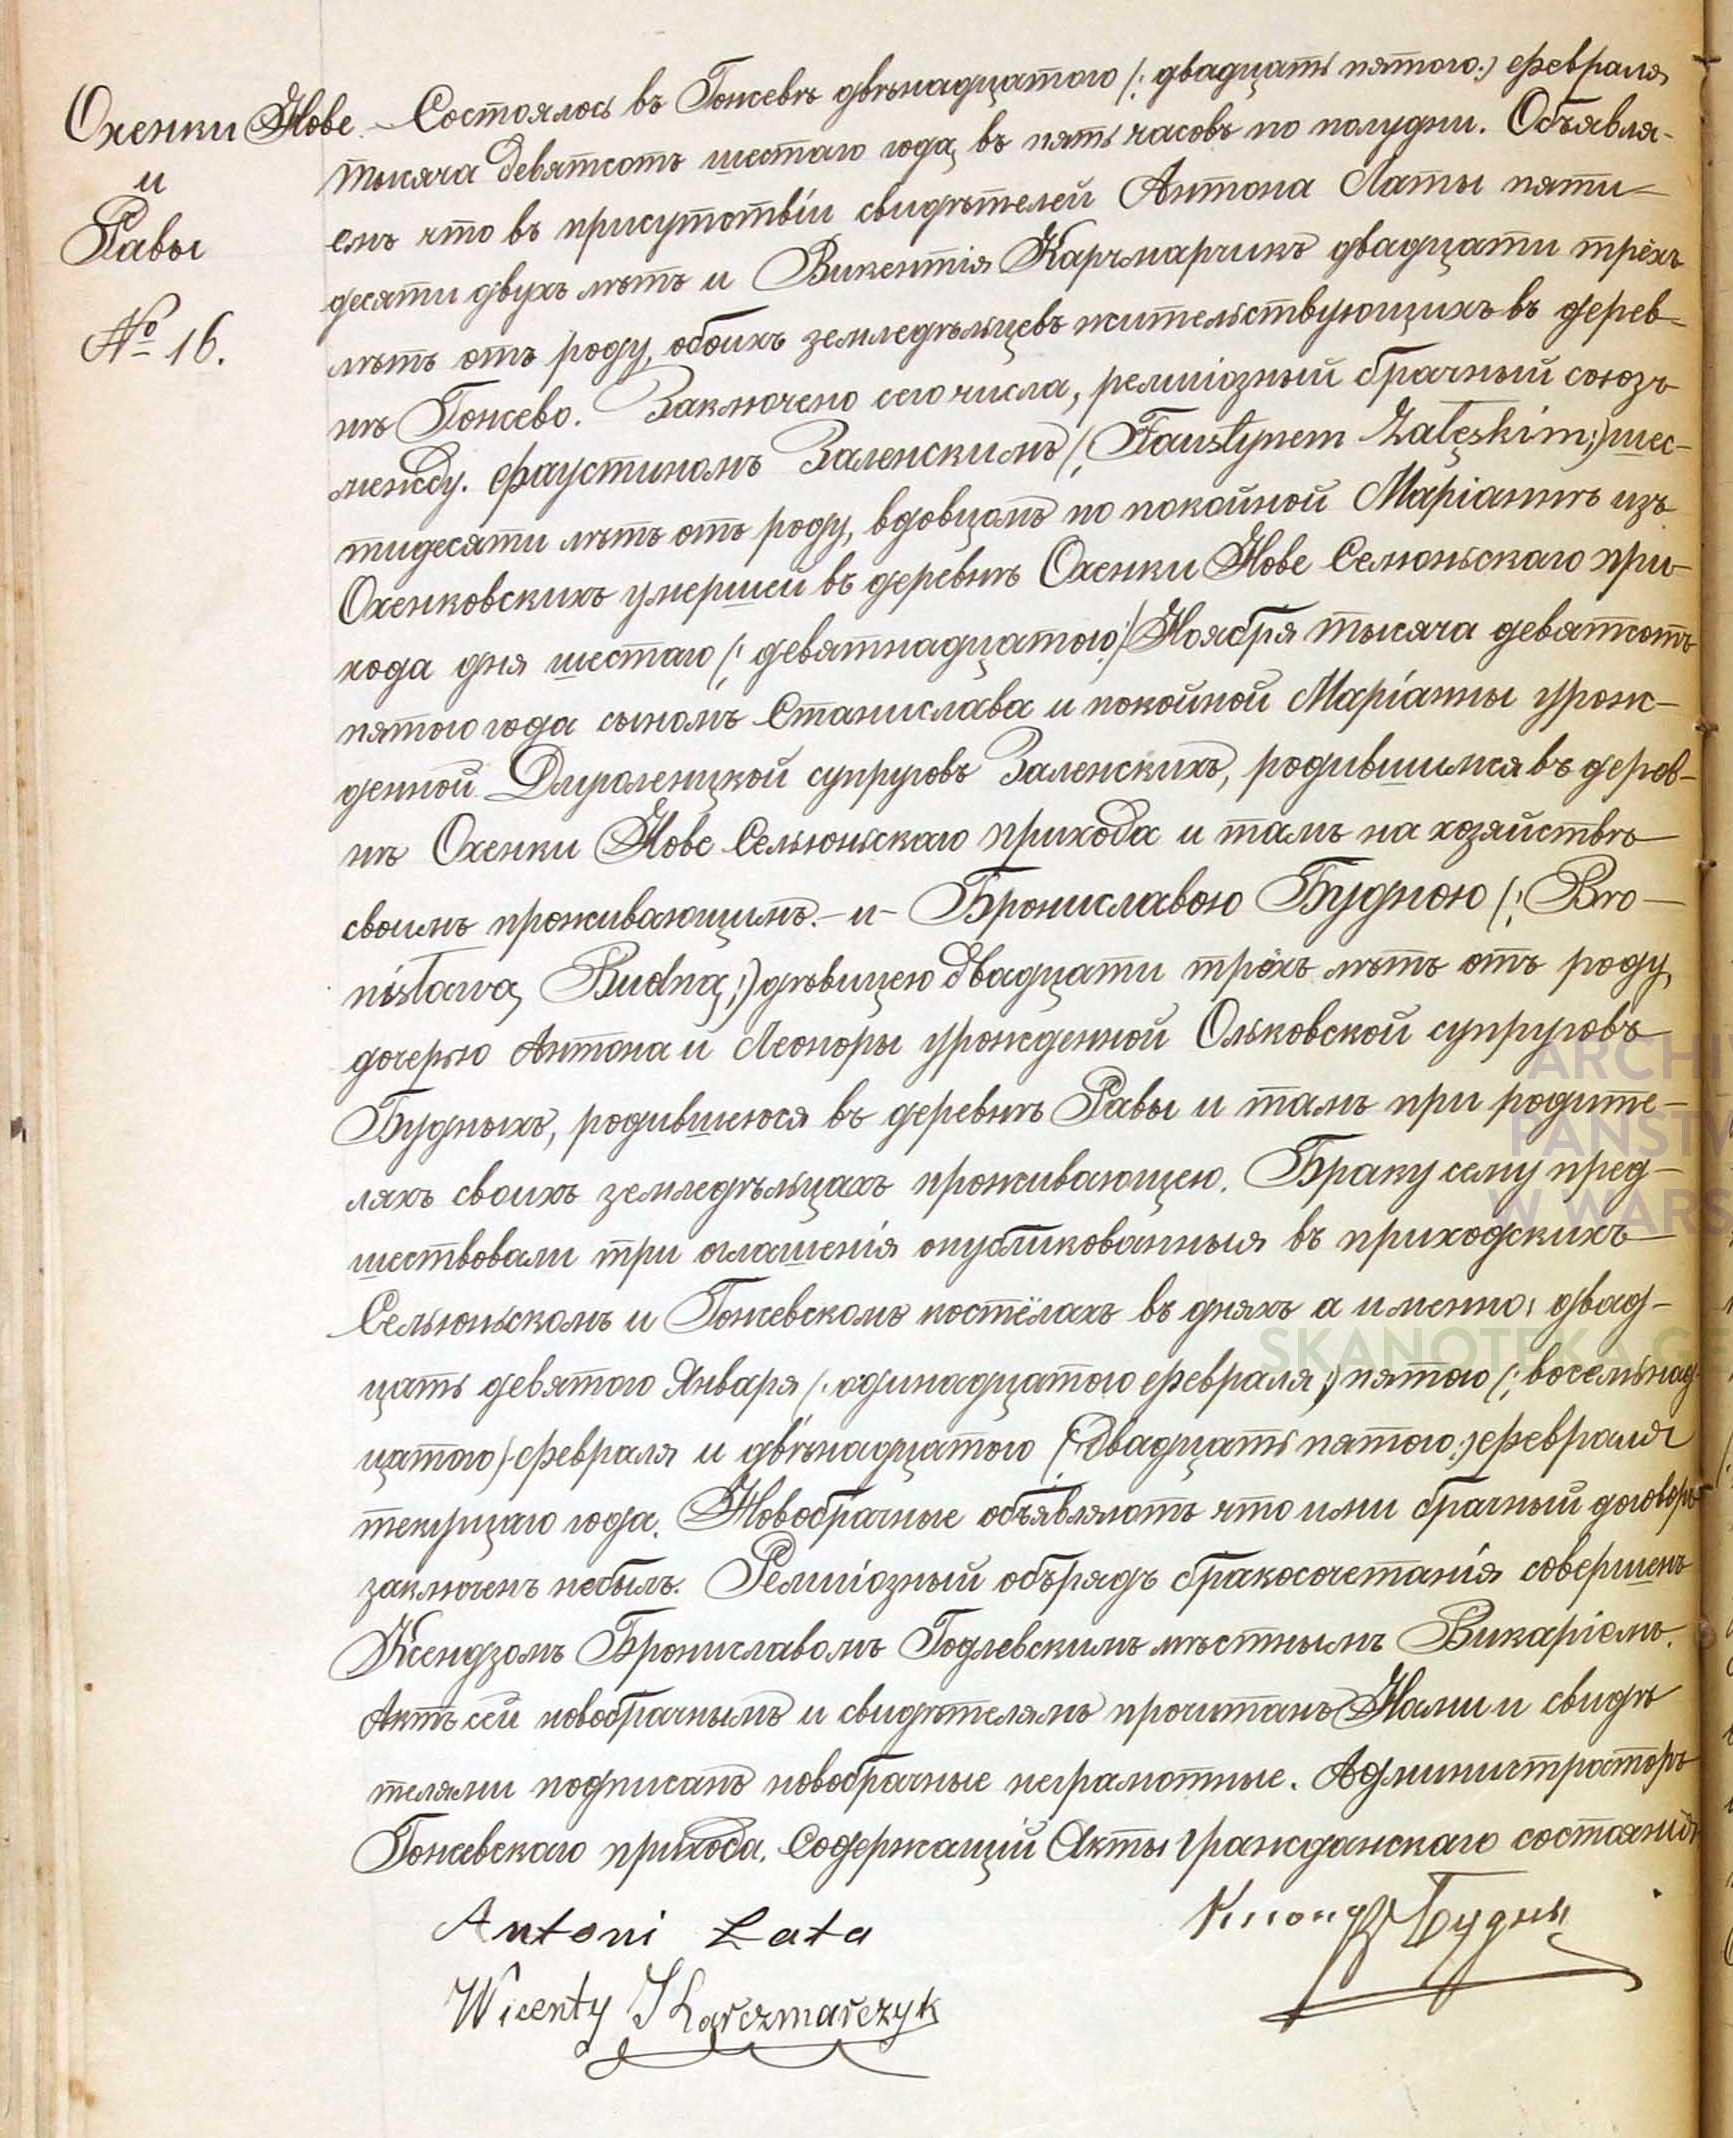 Охенки Нове
и
Равы
№ 16.
Состоялось въ Гожеве двѣнадцатого (: двадцать пятого:) февраля
тысяча девятсотъ шестаго года въ пять часовъ по полудни. Объявля-
емъ что въ присутствіи свидѣтелей Антона Латы пяти-
десяти двухъ лѣтъ и Викентія Карчмарчикъ двадцати трёхъ
лѣтъ отъ роду, обоихъ земледѣльцевъ жительствующихъ въ дерев-
нѣ Гожево. Заключено сего числа, религіозный брачный союзъ
между. Фаустиномъ Заленскимъ (: Faustynem Załęskim:) шес-
тидесяти лѣтъ отъ роду, вдовцомъ по покойной Маріаннѣ изъ
Охенковскихъ умершей въ деревнѣ Охенки Нове Селюньскаго при-
хода дня шестаго (: девятнадцатого:) Ноября тысяча девятсотъ
пятого года сыномъ Станислава и покойной Маріанны урож-
денной Длуголенцкой супруговъ Заленскихъ, родившимся въ дерев-
нѣ Охенки Нове Сельюньскаго прихода и тамъ на хозяйствѣ
своимъ проживающимъ. - и - Брониславою Будною (: Bro-
nisławą Budną:) дѣвицею двадцати трёхъ лѣтъ отъ роду,
дочерью Антона и Леоноры урожденной Ольковской супруговъ
Будныхъ, родившеюся въ деревнѣ Равы и тамъ при родите-
ляхъ своихъ земледѣльцахъ проживающею. Браку сему пред-
шествовали три оглашенія опубликованныя въ приходскихъ
Сельюньскомъ и Гожевскомъ костёлахъ въ дняхъ а именно: двад-
цать девятого Января (: одинадцатого февраля:) пятого (: восемьнад-
цатого) февраля и двѣнадцатого (: двадцать пятого:) февраля
текущаго года. Новобрачные объявляютъ что ими брачный договоръ
заключенъ небылъ. Религіозный обърядъ бракосочетанія совершенъ
Ксендзомъ Брониславомъ Годлевскимъ мѣстнымъ Викаріемъ.
Актъ сей новобрачнымъ и свидѣтелямъ прочитанъ Нами и свидѣ
телями подписанъ новобрачные неграмотные. Администраторъ
Гожевскаго прихода. Содержащій Акты гражданскаго состоянія
Antoni Łata
Будны
Wicenty Karczmarczyk
ARCHI
PAŃSTW
W WARS
SKANOTEKA GE